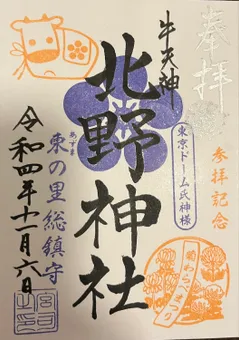 奉拝
牛天神
北野神社
東京ドーム氏神様
参拝記念
あずま
東の里総鎮守
令和四年十一月六日